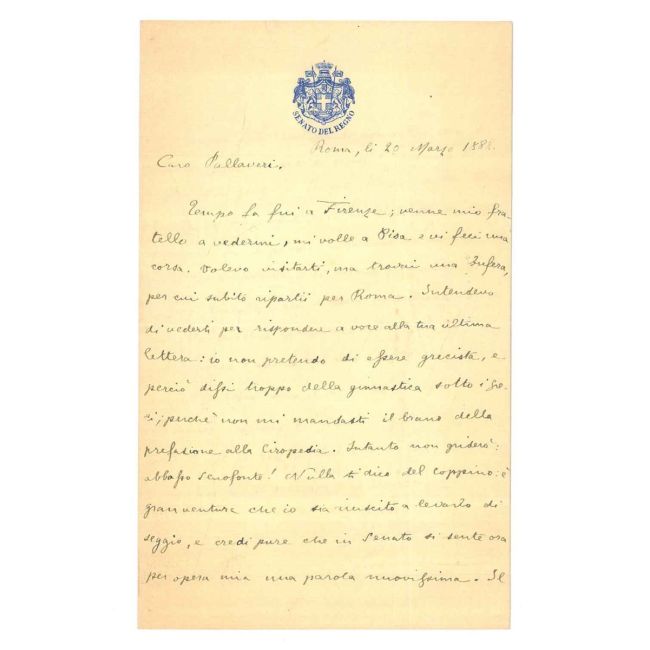 SENATO DEL REGNO
Roma, li 20 Marzo 188
Caro Pallaveri.
Tempo fa fui a Firenze; venne mio fra
tello a vedermi, mi volle a Pisa e vi feci una
corsa. Volevo visitarti, ma trovai una
per cui subito ripartii per Roma. Intendevo
di vederti per rispondere a voce alla tua ultima
lettera: io non pretendo di essere grecista, e
perciò dissi troppo della ginnastica sotto i Gre
ci; perchè non mi mandasti il brano della
prefasione alla Ciropedia. Intanto non griderò:
abbasso Senofonte! Nulla ti dico del Coppino: è
gran ventura che io sia riuscito a levarlo di
seggio, e credi pure che in Senato si sente ora
per opera mia una parola nuovissima. Il